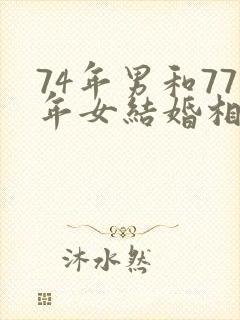 74年男和77
年女結婚相
沐水然